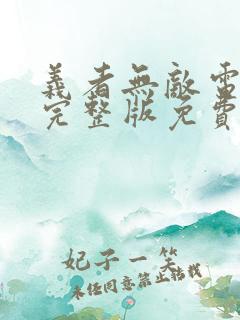 義者無敵電
完整版免費
妃子一笑
未经同意禁止转载